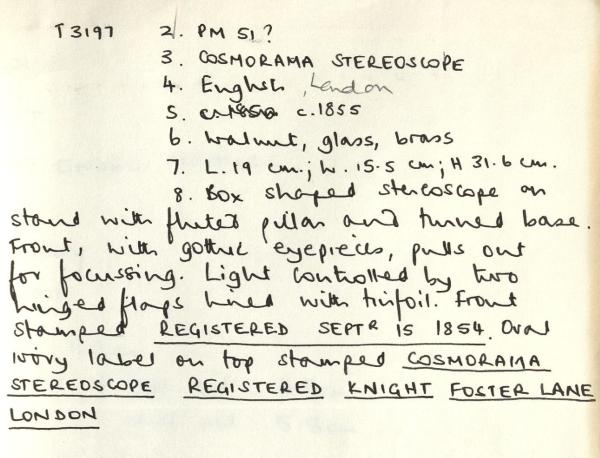 T3197 2. PM 51?
3. COSMORAMA STEREOSCOPE
4. English, London
5. c.1850 c.1855
6. Walnut, glass, brass
7. L. 19 cm.; W. 15.5 cm; H 31.6 cm.
8. Box shaped stereoscope on
stand with fluted pillar and turned base.
Front, with gothic eyepieces, pulls out
for focussing. Light controlled by two
hinged flaps lined with tinfoil. Front
stamped REGISTERED SEPTR 15 1854. Oval
ivory label on top stamped COSMORAMA
STEREOSCOPE REGISTERED KNIGHT FOSTER LANE
LONDON